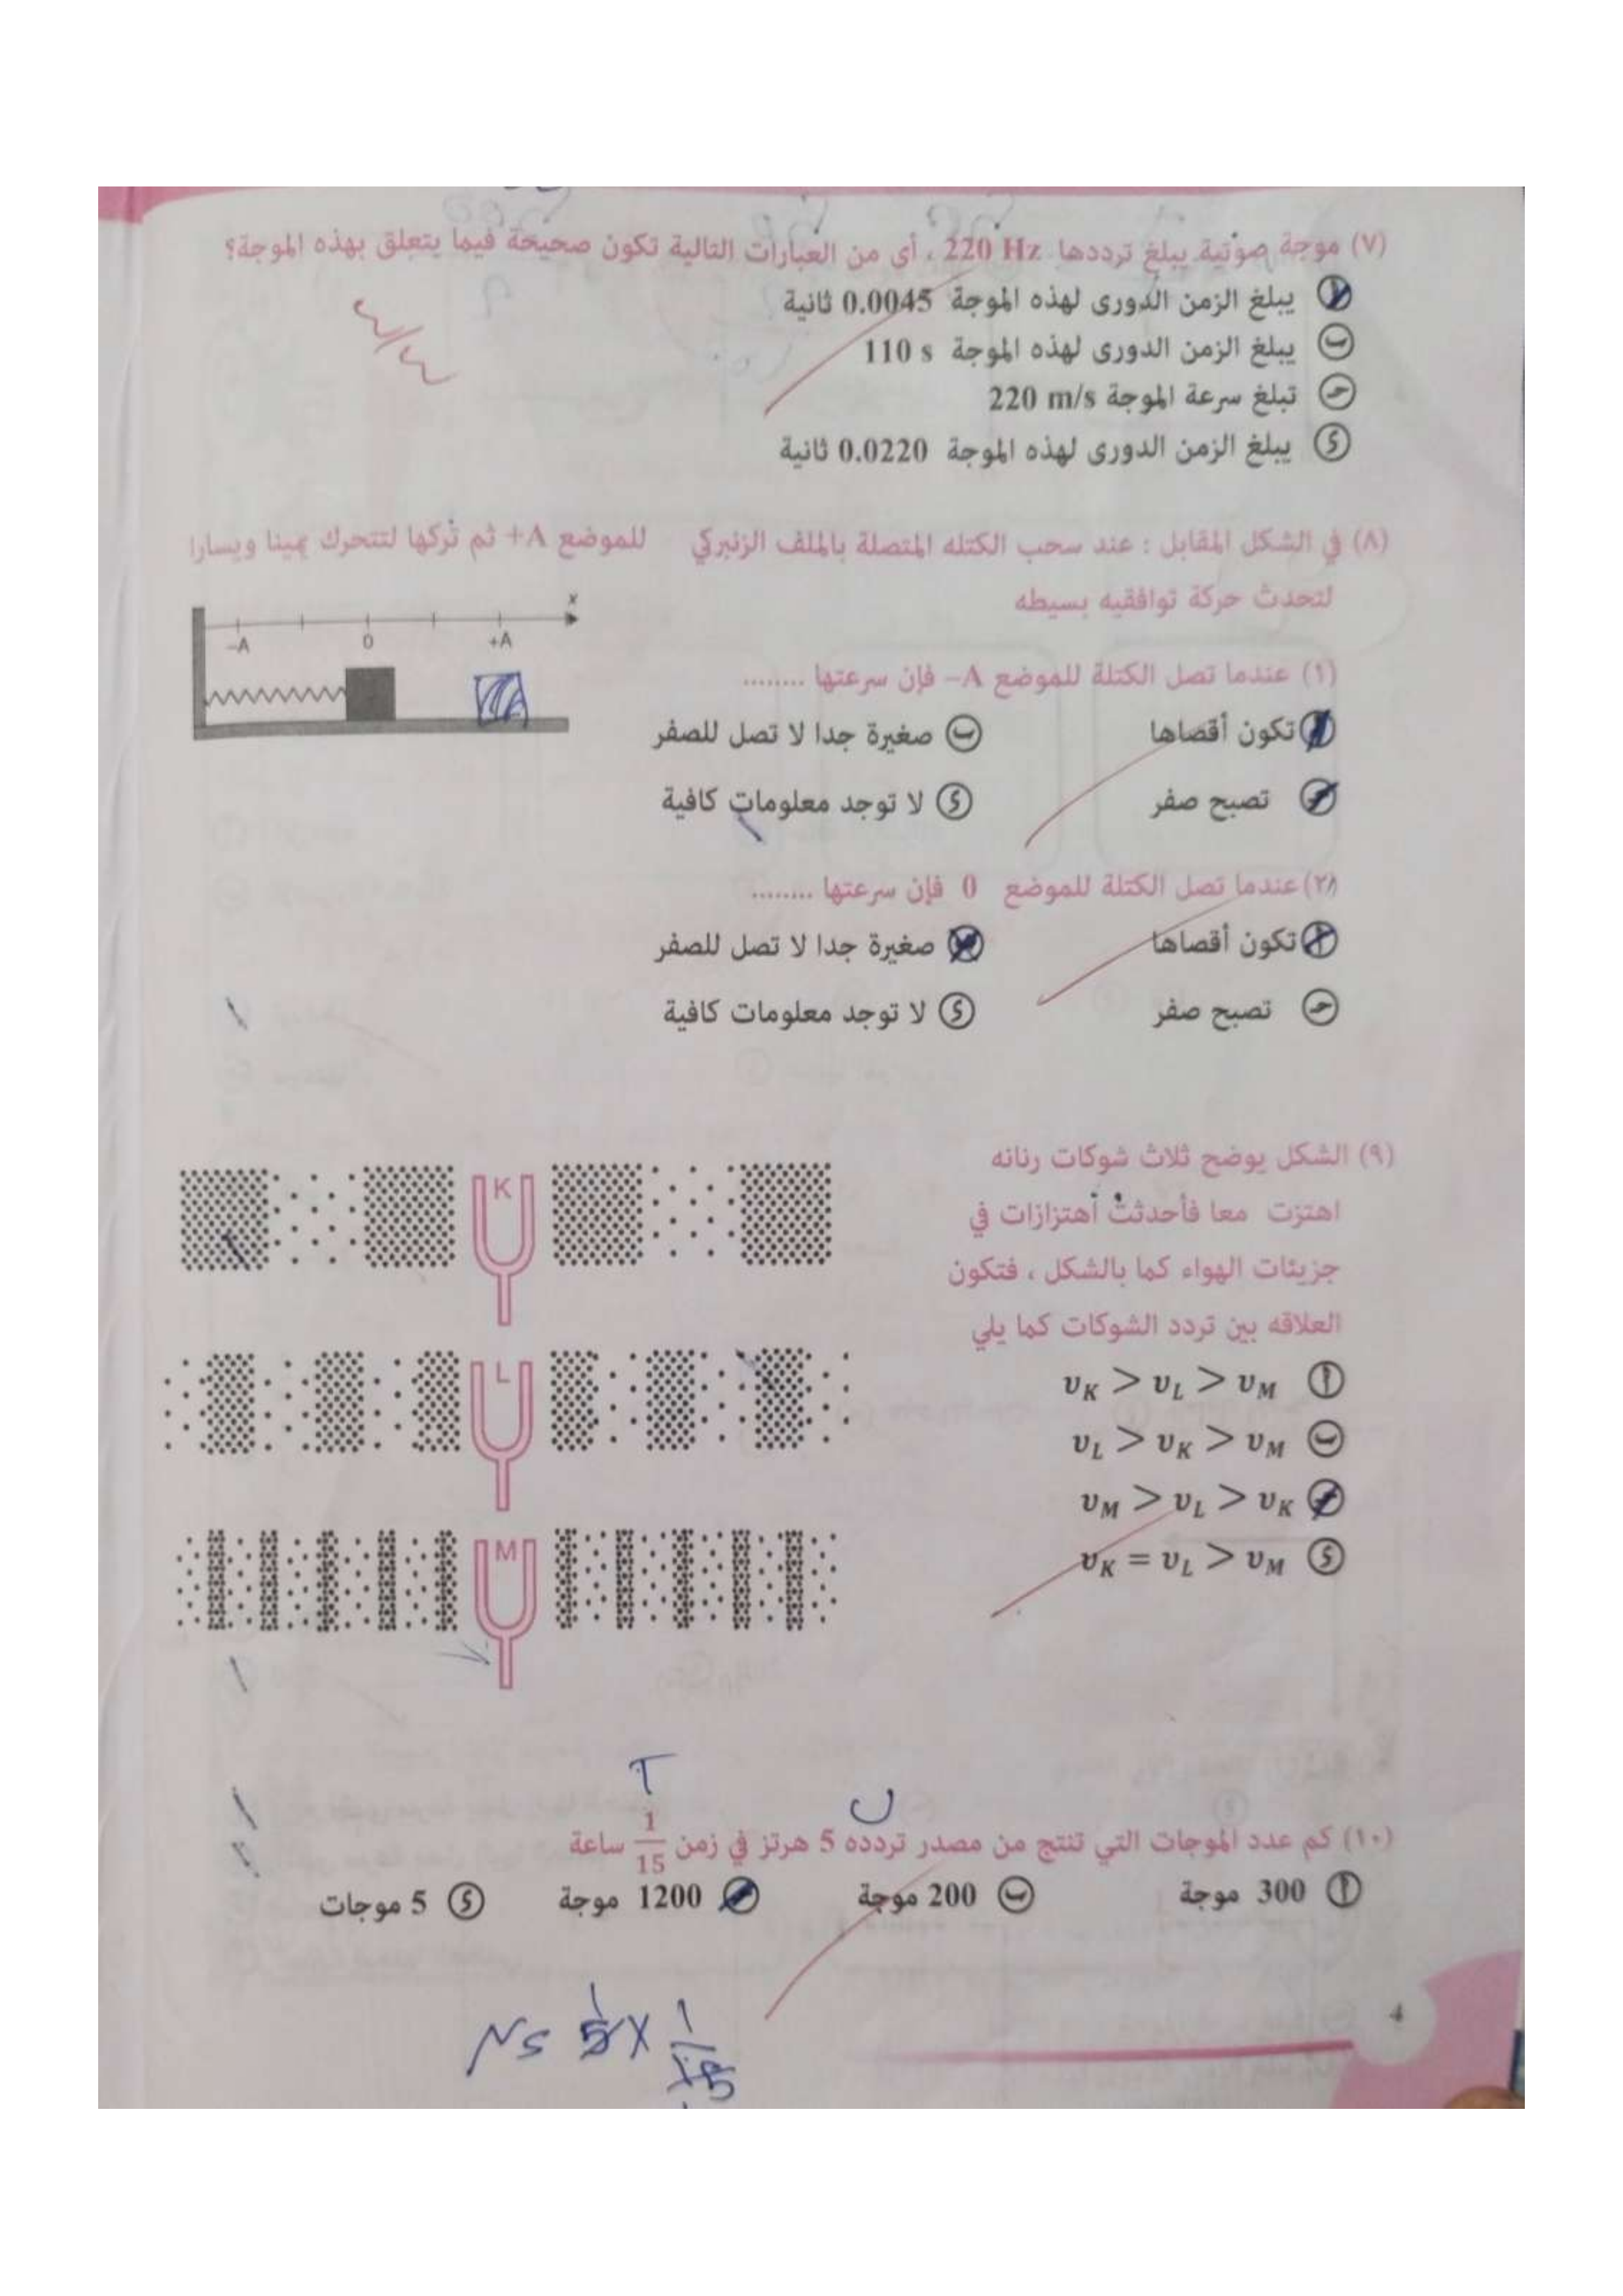 (٧) موجة صوتية يبلغ ترددها 220 Hz ، أى من العبارات التالية تكون صحيحة فيما يتعلق بهذه الموجة؟
أ يبلغ الزمن الدورى لهذه الموجة 0.0045 ثانية
ب يبلغ الزمن الدورى لهذه الموجة 110 s
جـ تبلغ سرعة الموجة 220 m/s
د يبلغ الزمن الدورى لهذه الموجة 0.0220 ثانية
(٨) في الشكل المقابل : عند سحب الكتله المتصلة بالملف الزنبركي للموضع +A ثم تركها لتتحرك يمينا ويسارا
لتحدث حركة توافقيه بسيطه
x
-A 0 +A
(١) عندما تصل الكتلة للموضع A– فإن سرعتها ........
أ تكون أقصاها ب صغيرة جدا لا تصل للصفر
جـ تصبح صفر د لا توجد معلومات كافية
(٢) عندما تصل الكتلة للموضع 0 فإن سرعتها ........
أ تكون أقصاها ب صغيرة جدا لا تصل للصفر
جـ تصبح صفر د لا توجد معلومات كافية
(٩) الشكل يوضح ثلاث شوكات رنانه
اهتزت معا فأحدثت أهتزازات في
جزيئات الهواء كما بالشكل ، فتكون
العلاقه بين تردد الشوكات كما يلي
أ υK > υL > υM
ب υL > υK > υM
جـ υM > υL > υK
د υK = υL > υM
K
L
M
T
υ
(١٠) كم عدد الموجات التي تنتج من مصدر تردده 5 هرتز في زمن 1/15 ساعة
أ 300 موجة ب 200 موجة جـ 1200 موجة د 5 موجات
4